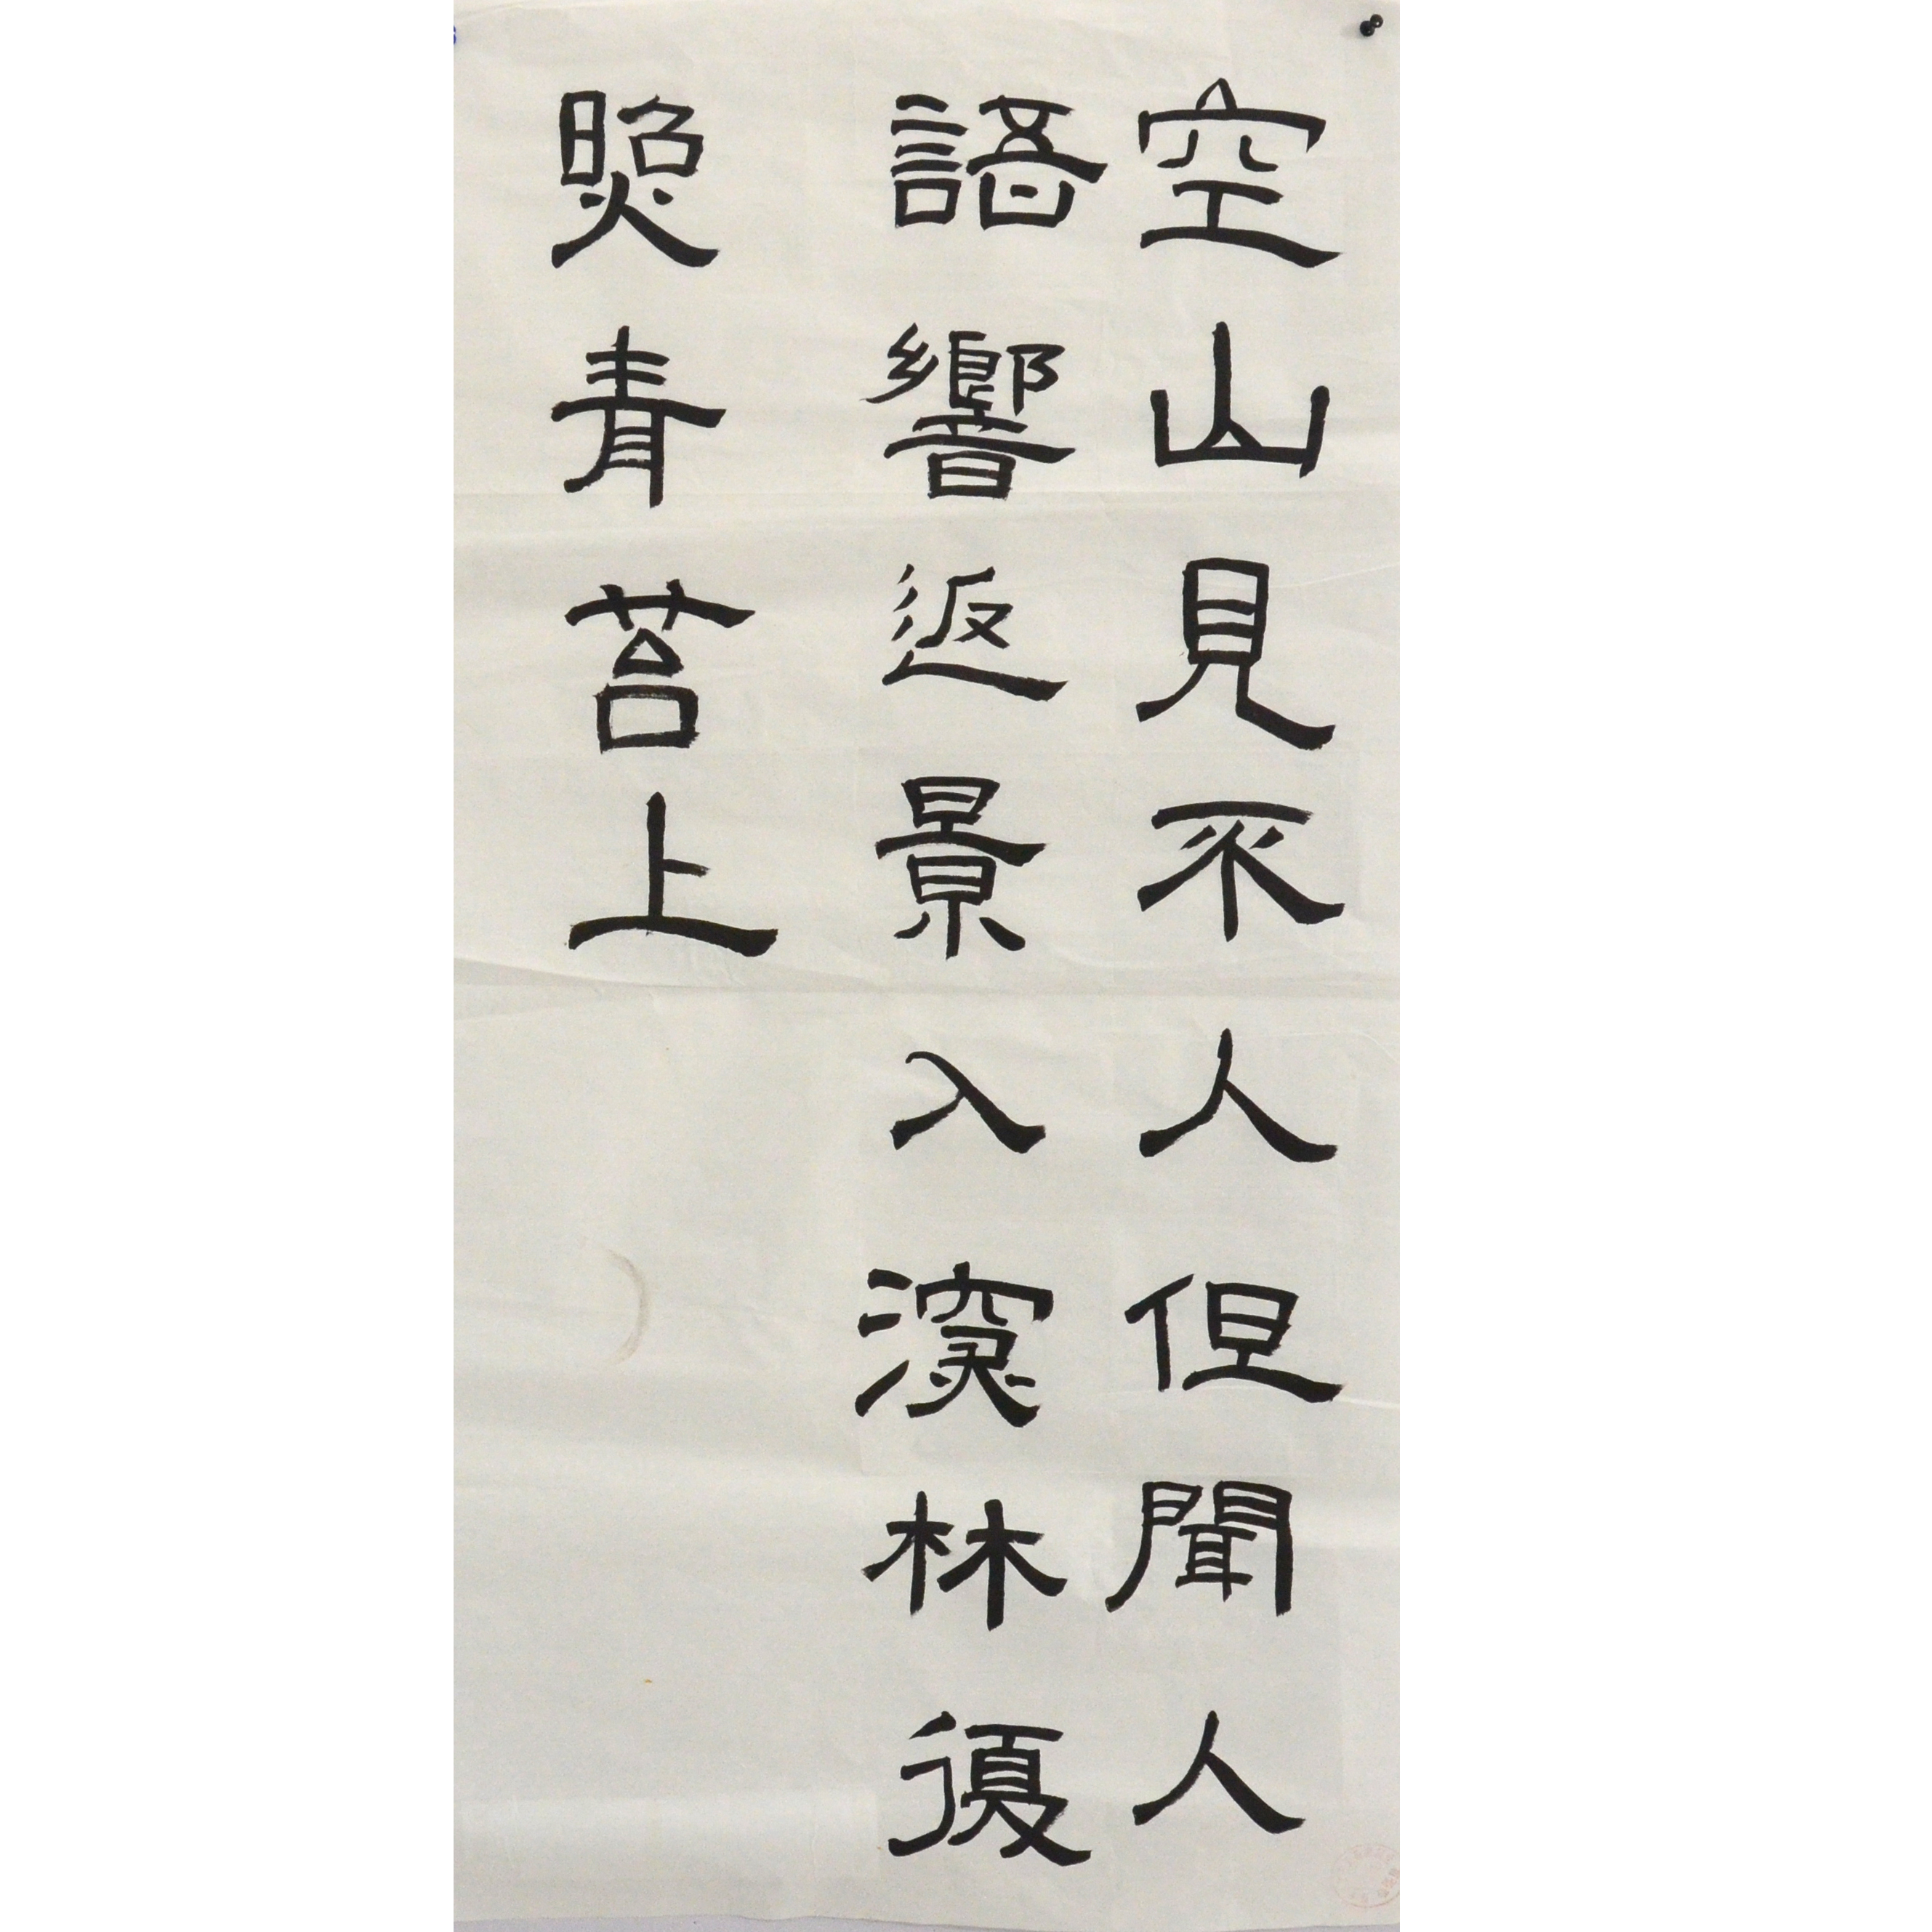 空山見不人但聞人
語響返景入深林復
照青苔上